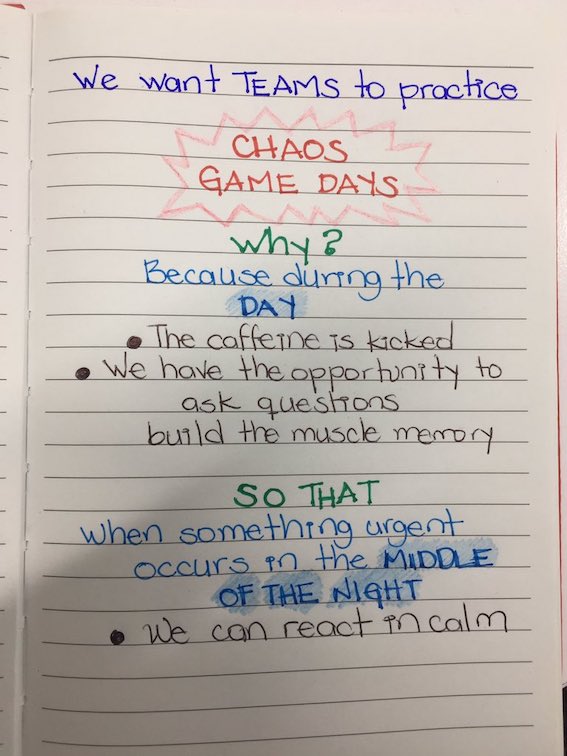 We want TEAMS to practice
CHAOS
GAME DAYS
Why?
Because during the
DAY
• The caffeine is kicked
• We have the opportunity to
ask questions
build the muscle memory
SO THAT
when something urgent
occurs in the MIDDLE
OF THE NIGHT
• We can react in calm